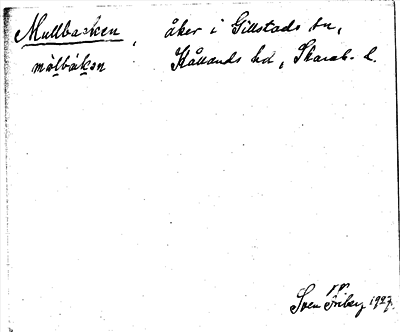 Mullbacken, åker i Gillstads sn,
mùlbákan Kållands hd, Skarab. l.
Sven Friberg 1927.